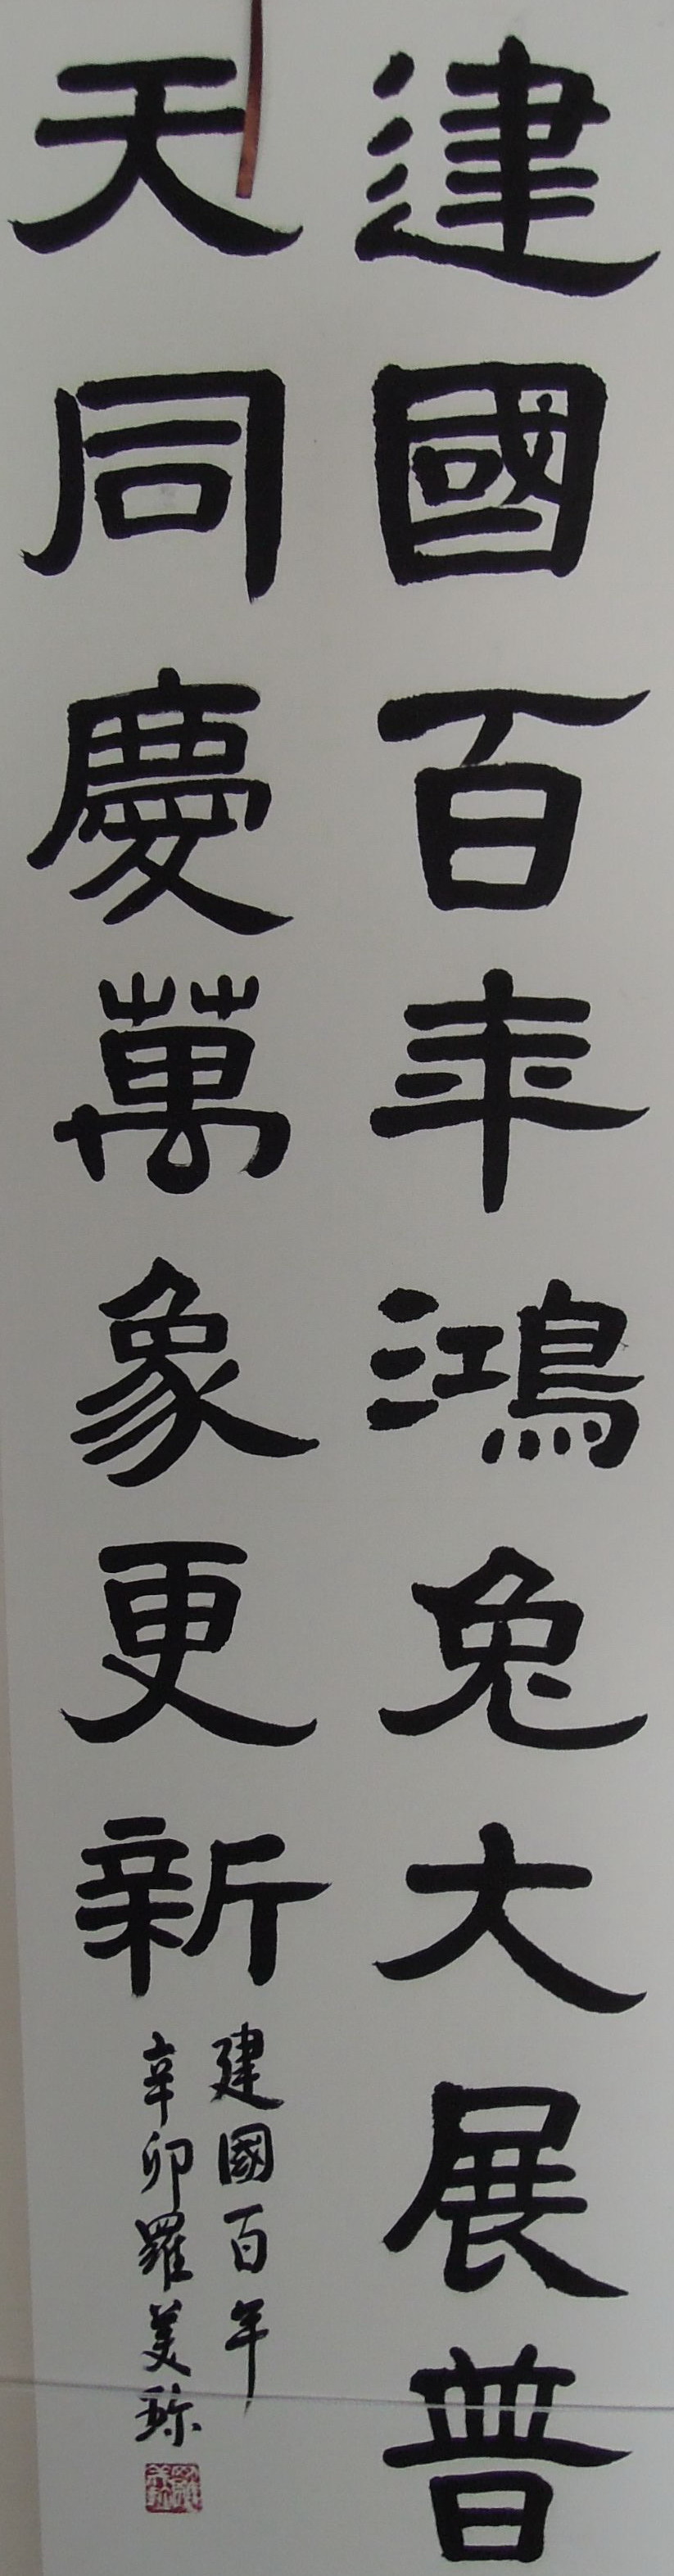 建國百年鴻兔大展普
天同慶萬象更新
建國百年
辛卯羅美珍